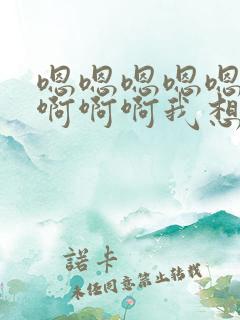 嗯嗯嗯嗯嗯
啊啊啊我想
諾卡
未经同意禁止转载